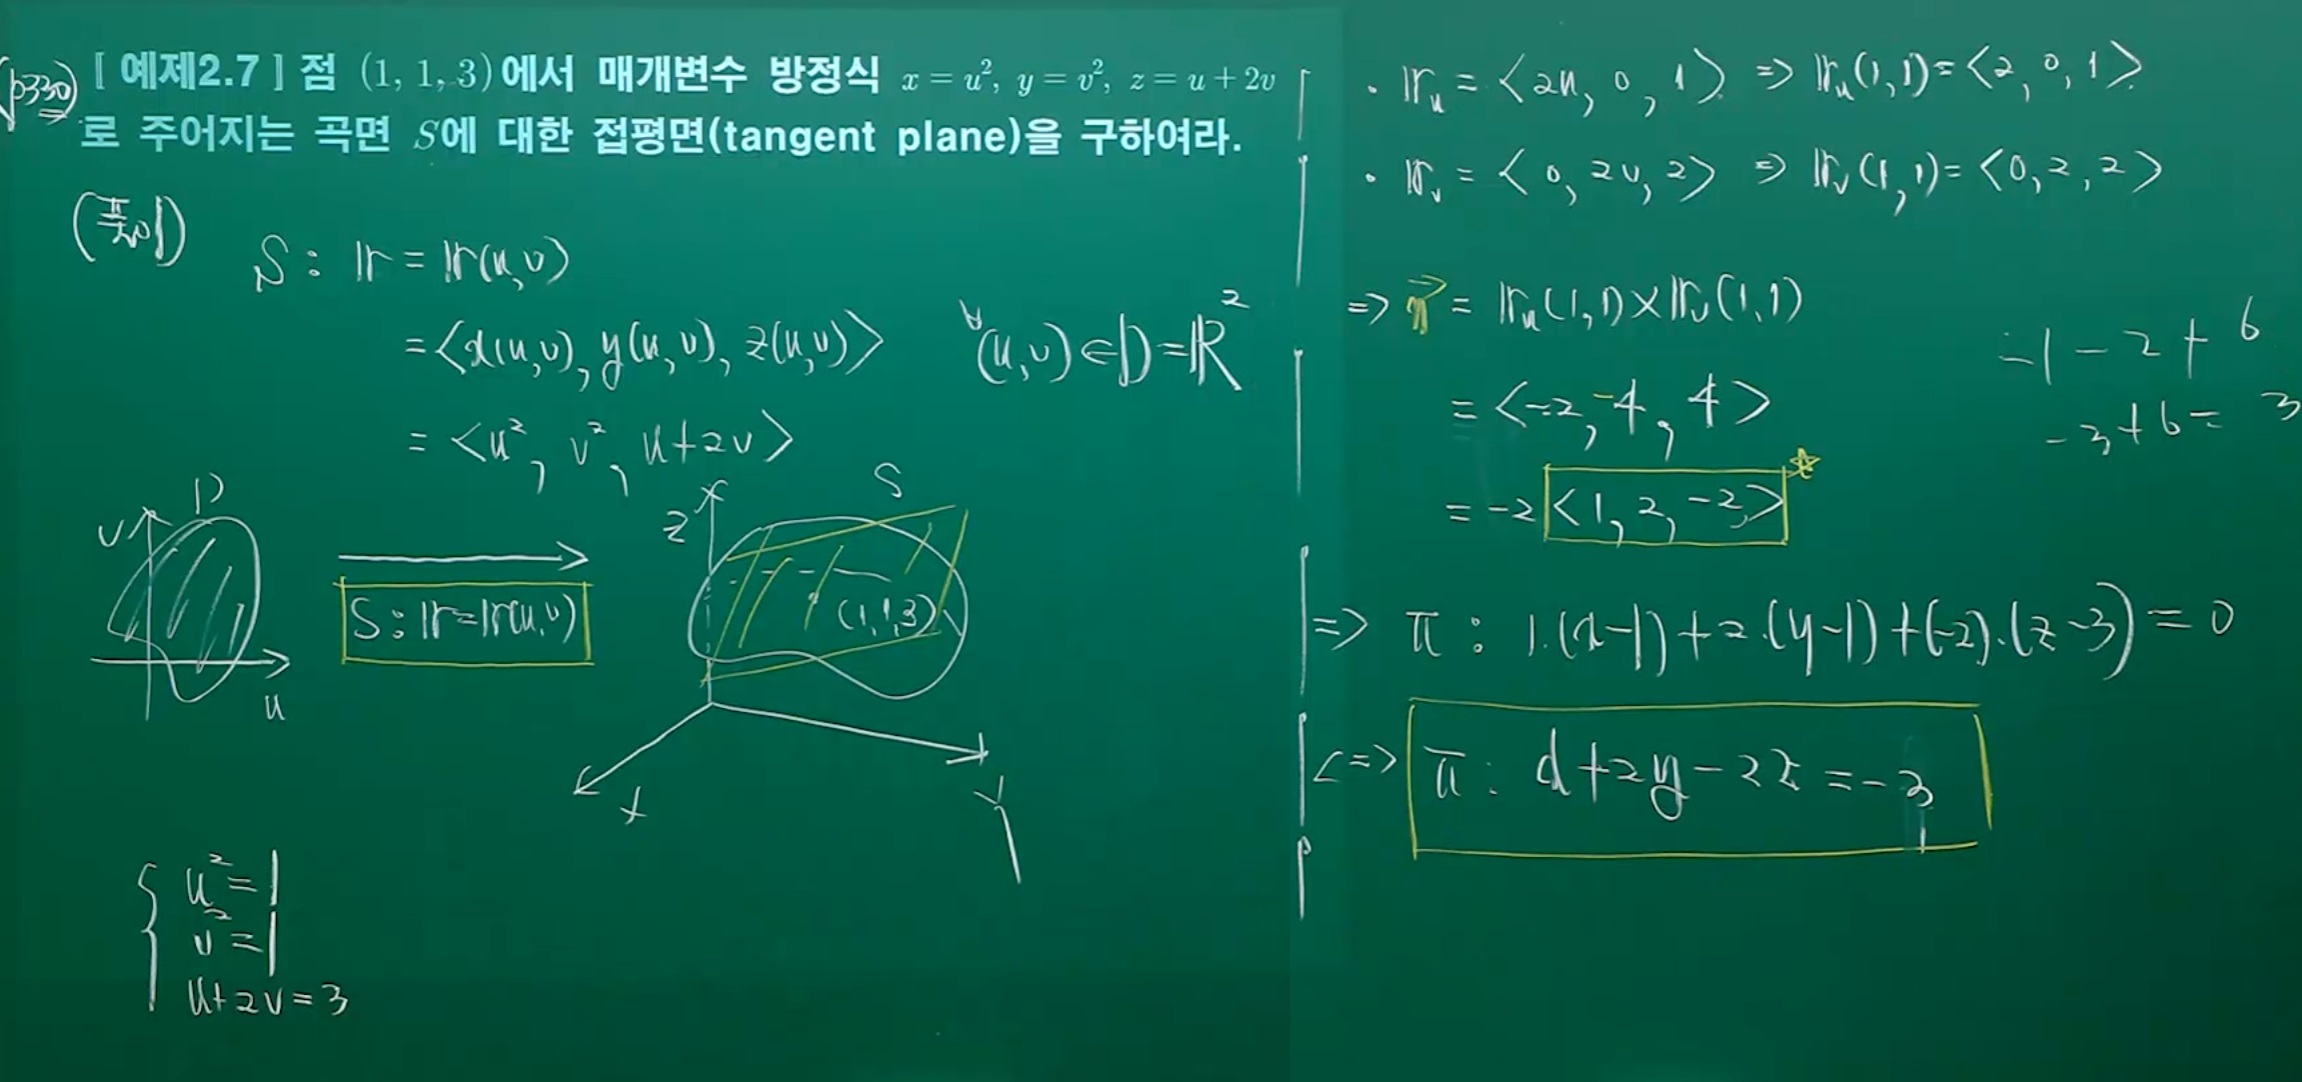 (p330) [ 예제2.7 ] 점 (1, 1, 3)에서 매개변수 방정식 x = u², y = v², z = u + 2v
로 주어지는 곡면 S에 대한 접평면(tangent plane)을 구하여라.
(풀이)
S : r = r(u,v)
= <x(u,v), y(u,v), z(u,v)> ∀(u,v)∈D=ℝ²
= <u², v², u+2v>
D
v
u
S : r=r(u,v)
S
z
(1,1,3)
x
y
u²=1
v²=1
u+2v=3
· r_u = <2u, 0, 1> => r_u(1,1)=<2, 0, 1>
· r_v = <0, 2v, 2> => r_v(1,1)=<0, 2, 2>
=> n⃗ = r_u(1,1)×r_v(1,1)
= <-2, -4, 4>
= -2<1, 2, -2>
-1-2+6
-3+6=3
=> π : 1·(x-1)+2·(y-1)+(-2)·(z-3)=0
<=> π : x+2y-2z=-3